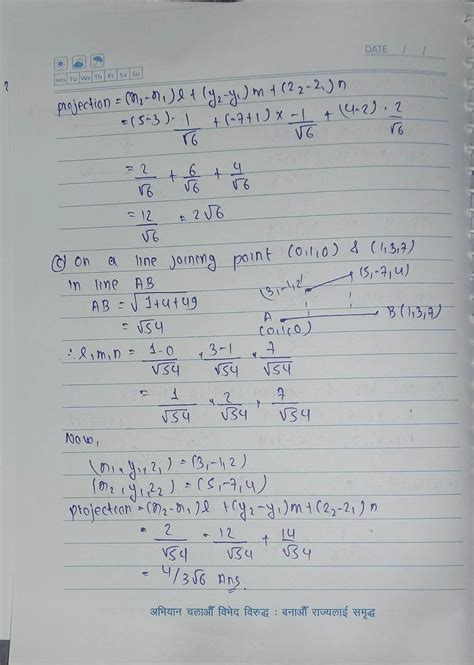 DATE / /
Mo Tu We Th Fr Sa Su
projection = (x₂-x₁)l + (y₂-y₁)m + (z₂-z₁)n
= (5-3)·1/√6 + (-7+1)×-1/√6 + (4-2)·2/√6
= 2/√6 + 6/√6 + 4/√6
= 12/√6 = 2√6
(c) on a line joining point (0,1,0) & (1,3,7)
in line AB
(3,-1,2) (5,-7,4)
AB = √1+4+49
= √54
A (0,1,0) B (1,3,7)
∴ l,m,n = 1-0/√54, 3-1/√54, 7/√54
= 1/√54, 2/√54, 7/√54
Now,
(x₁, y₁, z₁) = (3,-1,2)
(x₂, y₁, z₂) = (5,-7,4)
projection = (x₂-x₁)l + (y₂-y₁)m + (z₂-z₁)n
= 2/√54 - 12/√54 + 14/√54
= 4/3√6 Ans
अभियान चलाऔँ विभेद विरुद्ध : बनाऔँ राज्यलाई समृद्ध